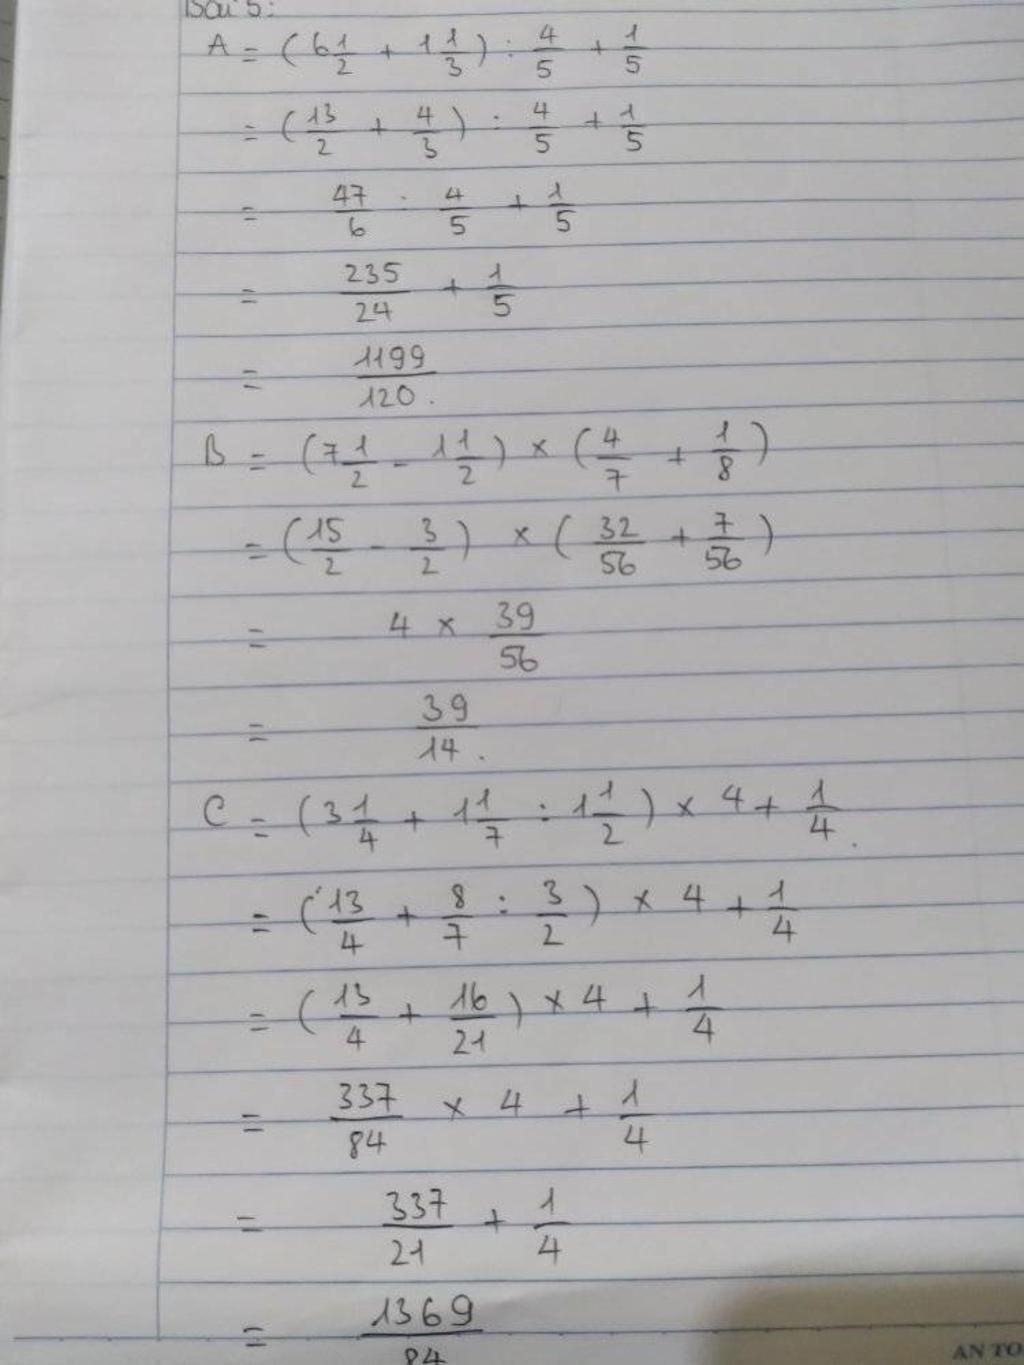 Bài 5:
A = (6 1/2 + 1 1/3) : 4/5 + 1/5
= (13/2 + 4/3) : 4/5 + 1/5
= 47/6 : 4/5 + 1/5
= 235/24 + 1/5
= 1199/120.
B = (7 1/2 - 1 1/2) × (4/7 + 1/8)
= (15/2 - 3/2) × (32/56 + 7/56)
= 4 × 39/56
= 39/14.
C = (3 1/4 + 1 1/7 : 1 1/2) × 4 + 1/4.
= (13/4 + 8/7 : 3/2) × 4 + 1/4
= (13/4 + 16/21) × 4 + 1/4
= 337/84 × 4 + 1/4
= 337/21 + 1/4
= 1369/84
AN TO